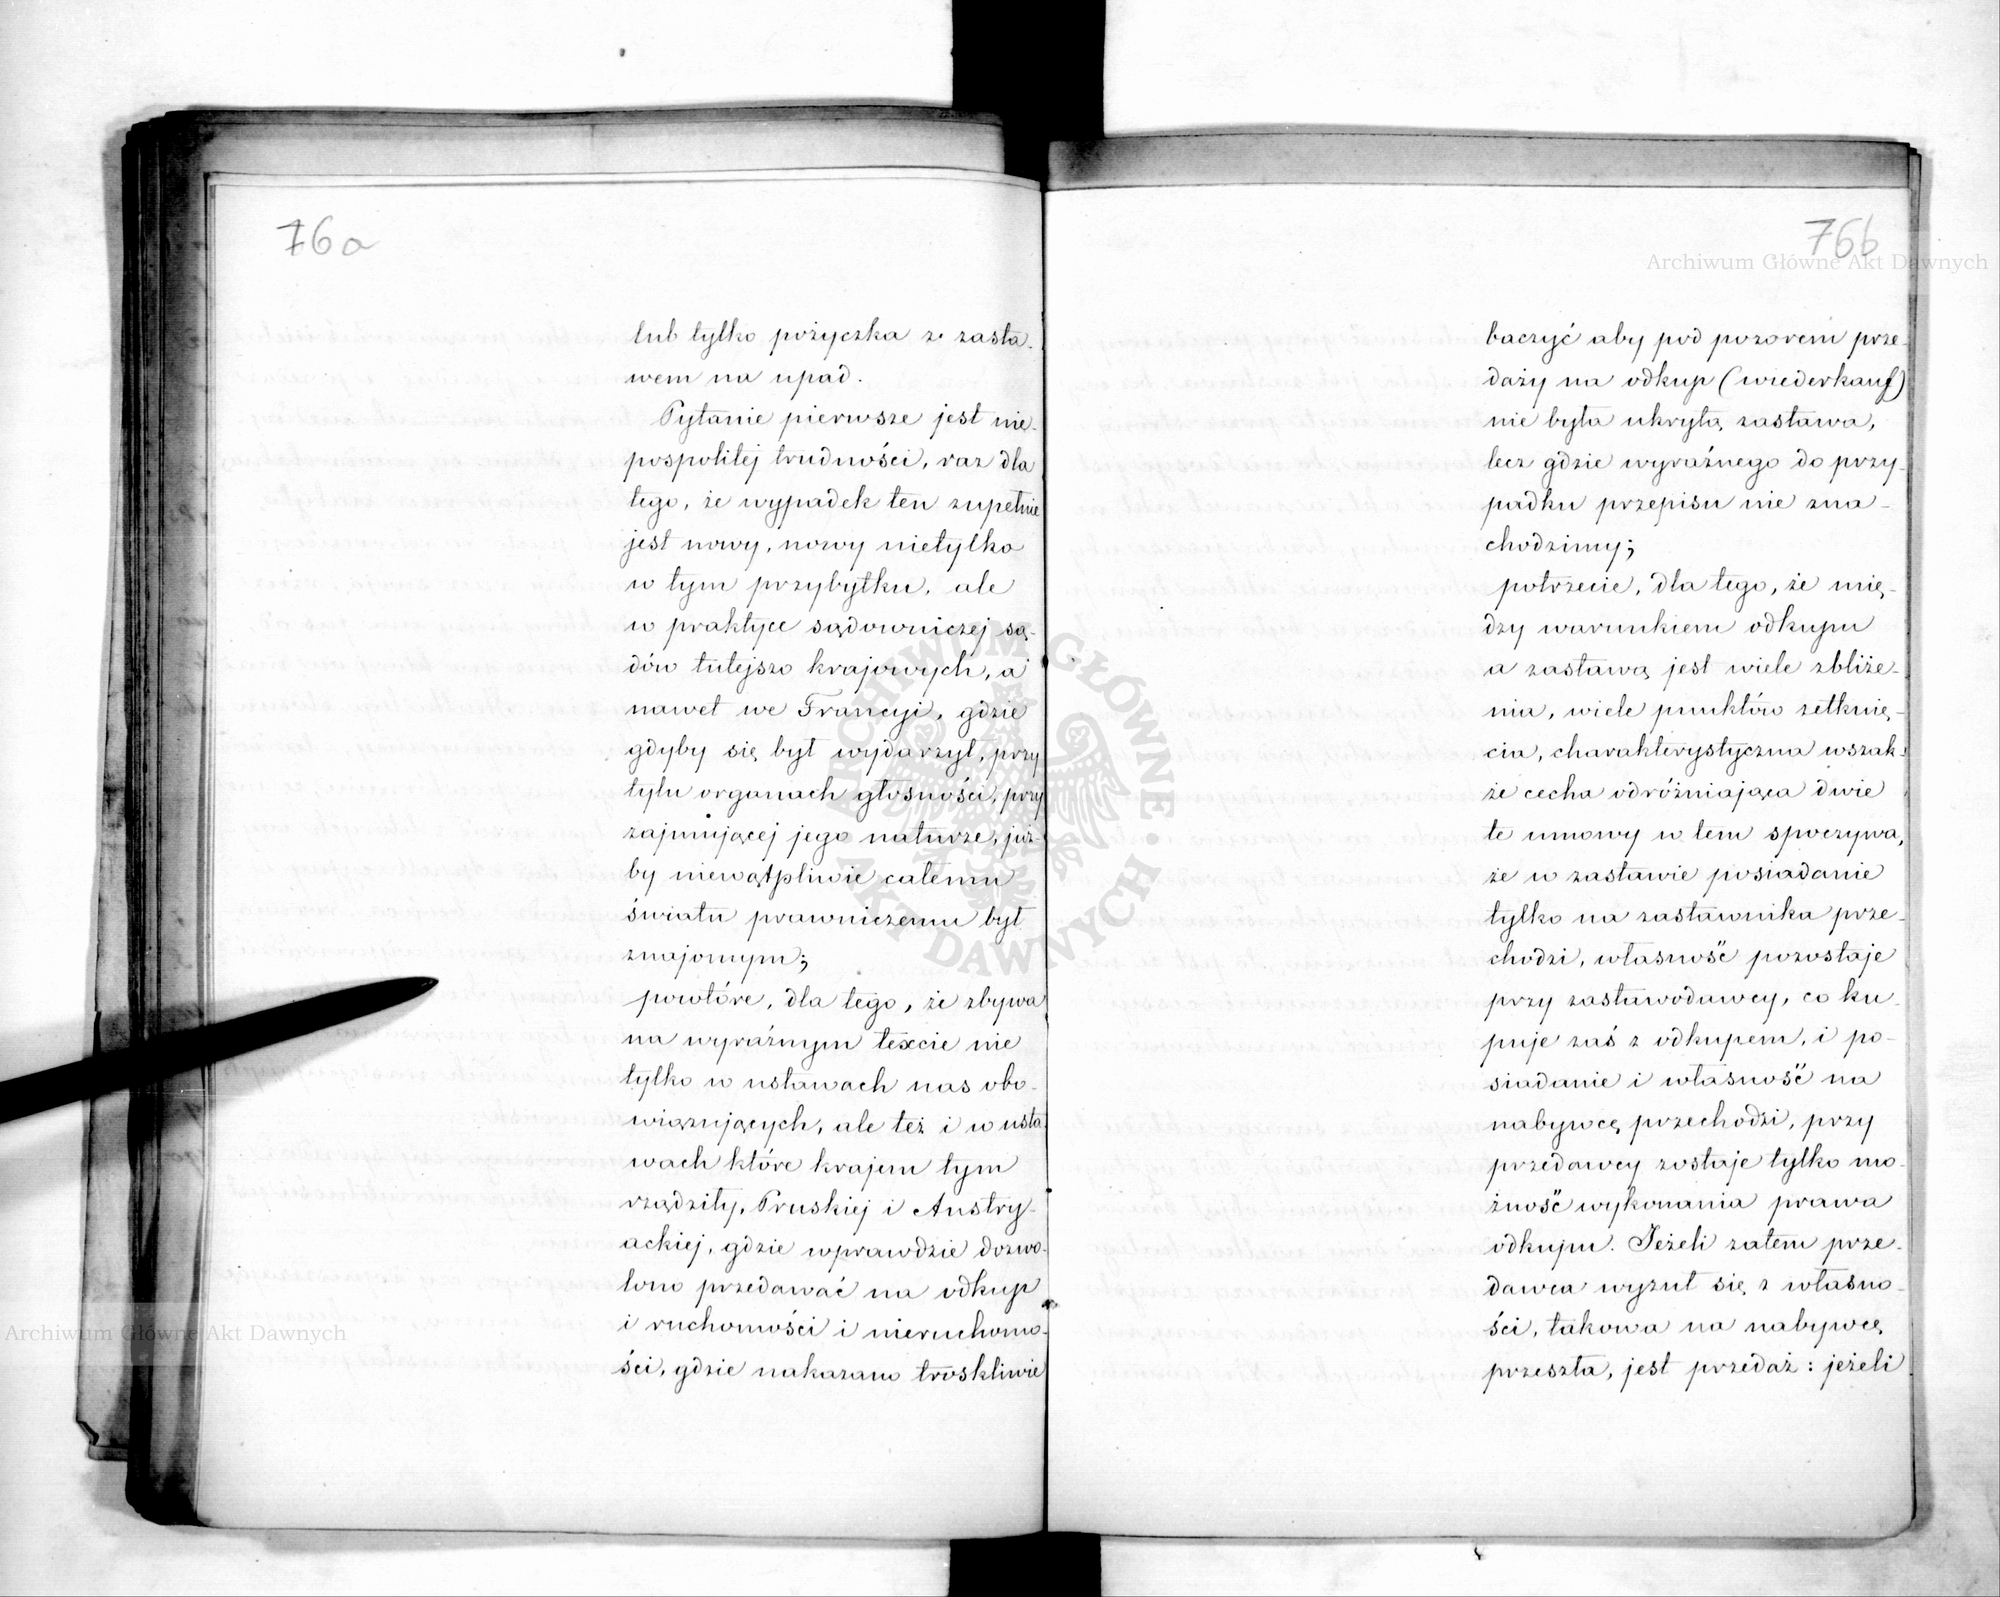 76a
lub tylko pożyczka z zasta-
wem na upad.
Pytanie pierwsze jest nie-
pospolitej trudności, raz dla
tego, że wypadek ten zupełnie
jest nowy, nowy nietylko
w tym przybytku, ale
w praktyce sądowniczej są-
dów tutejszo krajowych, a
nawet we Francyi, gdzie
gdyby się był wydarzył, przy
tylu organach głosności, przy
zajmującej jego naturze, już-
by niewątpliwie całemu
światu prawniczemu był
znajomym;
powtóre, dla tego, że zbywa
na wyraźnym texcie nie
tylko w ustawach nas obo-
wiązujących, ale też i w usta-
wach które krajem tym
rządziły, Pruskiej i Austry-
ackiej, gdzie wprawdzie dozwo-
lono przedawać na odkup
i ruchomości i nieruchomo-
ści, gdzie nakazano troskliwie
76b
baczyć aby pod pozorem prze-
daży na odkup (wiederkauf)
nie była ukrytą zastawa,
lecz gdzie wyraźnego do przy-
padku przepisu nie zna-
chodzimy;
potrzecie, dla tego, że mię-
dzy warunkiem odkupu
a zastawą jest wiele zbliże-
nia, wiele punktów zetknię-
cia, charakterystyczna wszak-
że cecha odróżniająca dwie
te umowy w tem spoczywa,
że w zastawie posiadanie
tylko na zastawnika prze-
chodzi, własność pozostaje
przy zastawodawcy, co ku-
puje zaś z odkupem, i po-
siadanie i własność na
nabywcę przechodzi, przy
przedawcy zostaje tylko mo-
żność wykonania prawa
odkupu. Jeżeli zatem prze-
dawca wyzuł się z własno-
ści, takowa na nabywcę
przeszła, jest przedaż: jeżeli
Archiwum Główne Akt Dawnych
Archiwum Główne Akt Dawnych
ARCHIWUM GŁÓWNE AKT DAWNYCH